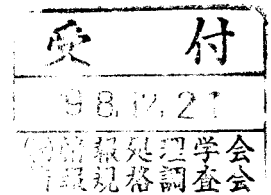 受 付
98.12.21
情報処理学会
情報規格調査会